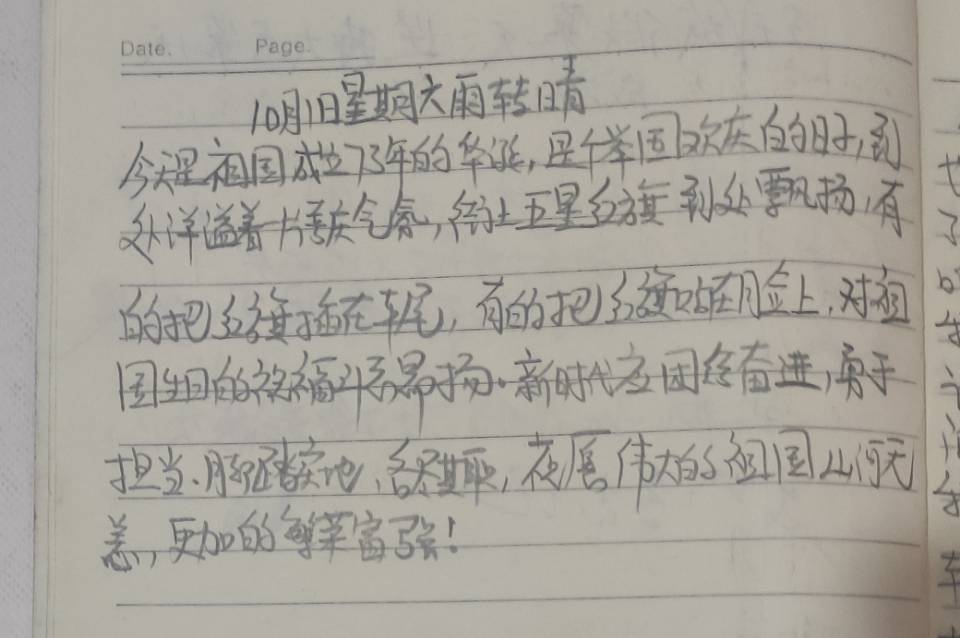 Date. Page.
10月1日星期六雨转晴
今天是祖国成立73年的华诞,是个举国欢庆的日子,到
处洋溢着片喜庆气氛,街上五星红旗到处飘扬,有
的把红旗插在车尾,有的把红旗贴在脸上,对祖
国生日的祝福斗志昂扬.新时代应团结奋进,勇于
担当、脚踏实地、各尽其职,祝愿伟大的祖国山河无
恙,更加的繁荣富强!